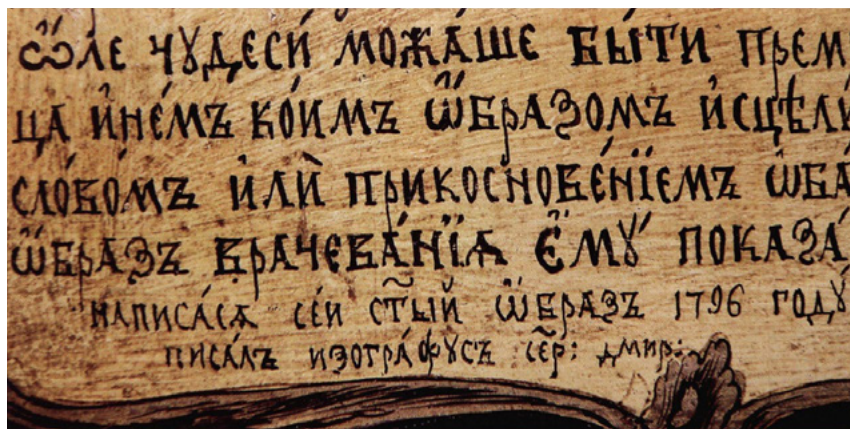 ѽле чꙋдеси́ можа́ше бы́ти прем
ца и҆не́мъ ко́имъ ѡ҆́бразомъ и҆сцѣли́
сло́вомъ и҆лѝ прикоснове́нїемъ ѡ҆ба́
ѡ҆́бразъ врачева́нїѧ є҆мꙋ́ показа́
написа́сѧ се́й ст҃ы́й ѡ҆́бразъ 1796 годꙋ
писа́лъ изогра́фусъ се҃р: дмир: